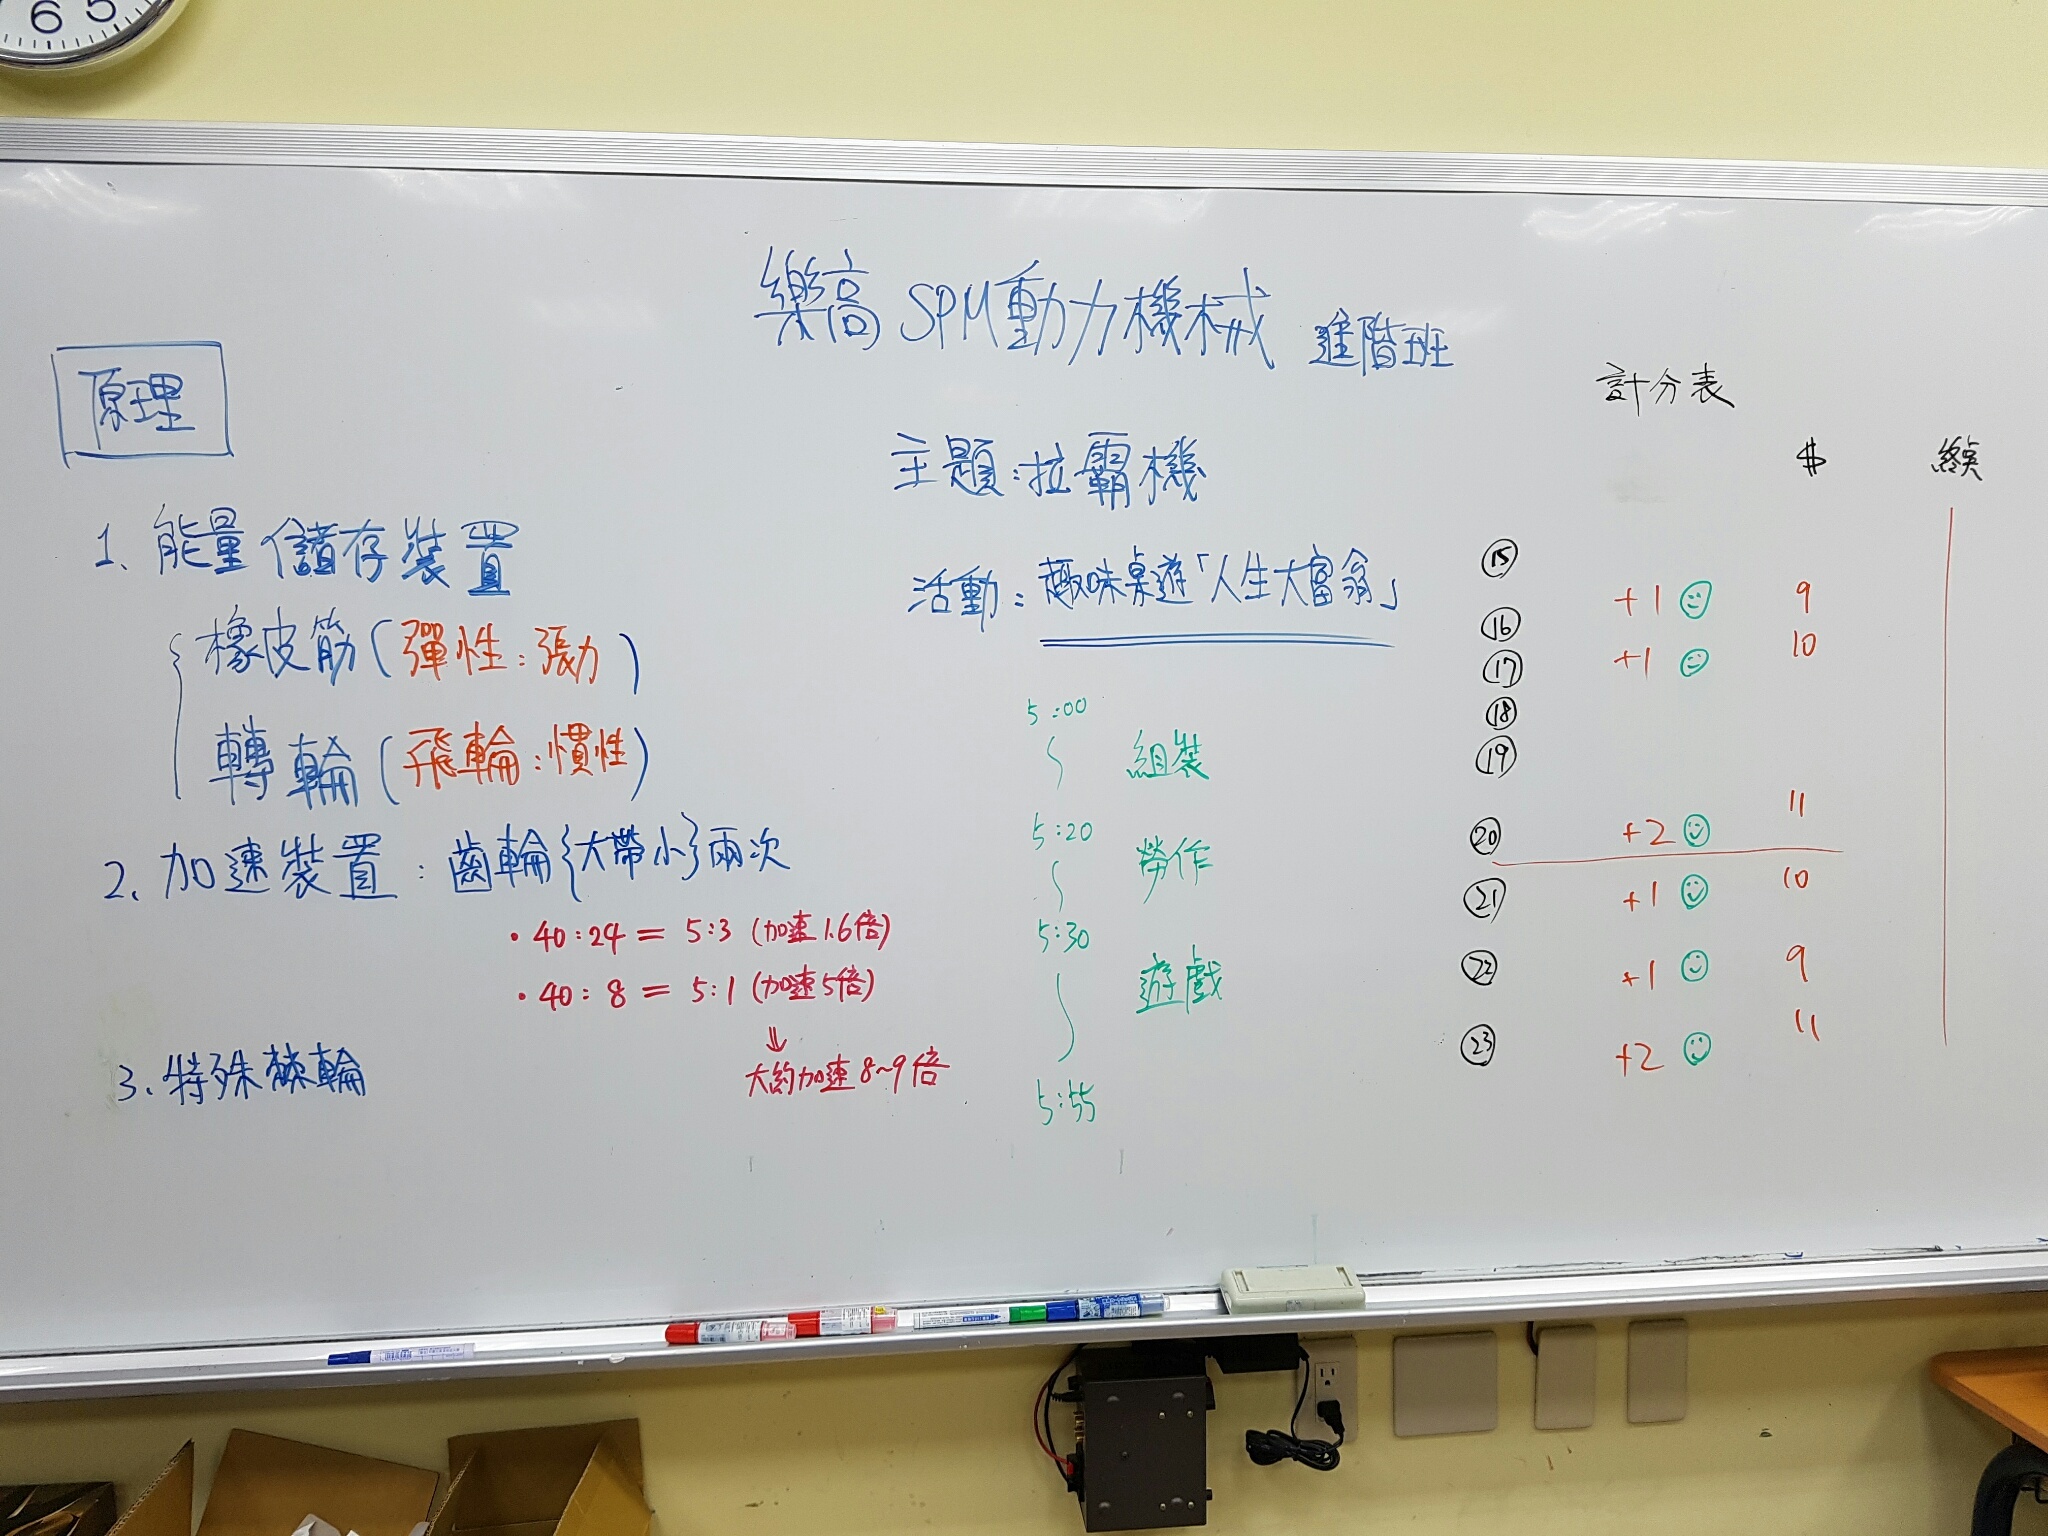 6 5
樂高 SPM動力機械 進階班
原理
1. 能量儲存裝置
橡皮筋(彈性:張力)
轉輪(飛輪:慣性)
2. 加速裝置:齒輪{大帶小}兩次
• 40:24 = 5:3 (加速1.6倍)
• 40:8 = 5:1 (加速5倍)
⇓
大約加速8~9倍
3. 特殊棘輪
主題:拉霸機
活動:趣味桌遊「人生大富翁」
5:00
組裝
5:20
勞作
5:30
遊戲
5:55
計分表
$
⑮
⑯ +1 9
⑰ +1 10
⑱
⑲
⑳ +2 11
㉑ +1 10
㉒ +1 9
㉓ +2 11